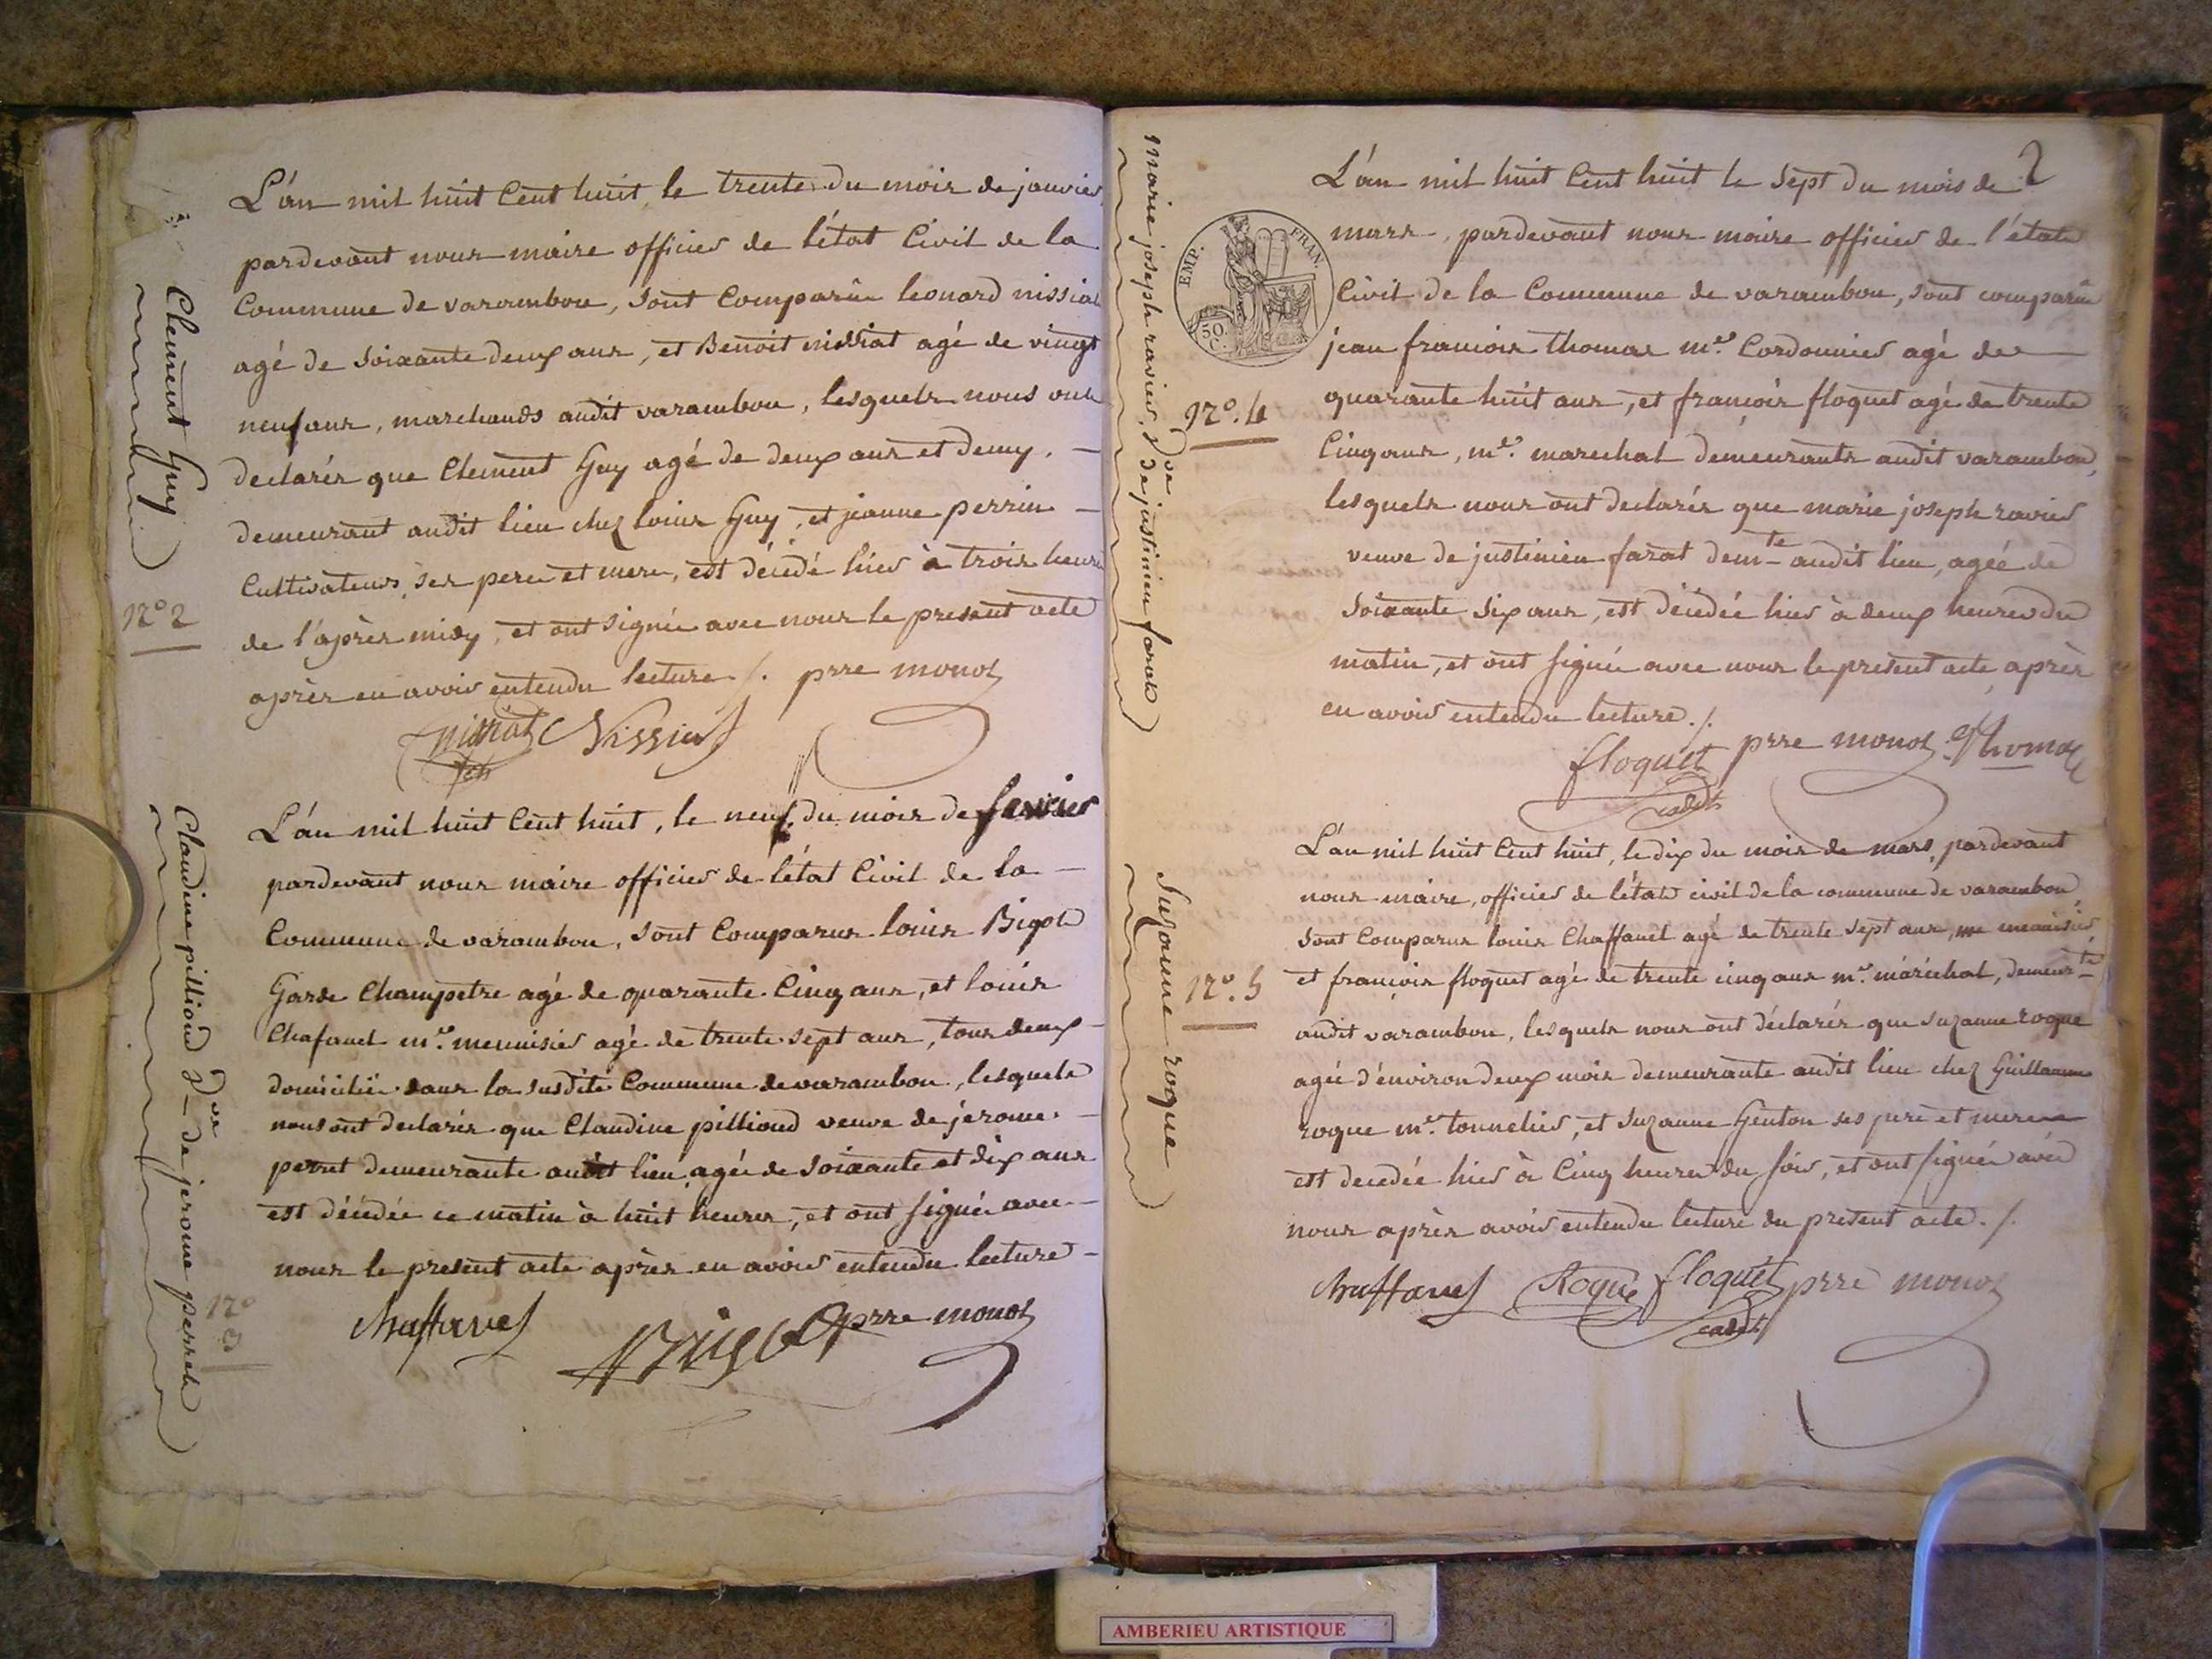 Clement Guy
N.° 2
L'an mil huit Cent huit, le trente du mois de janvier
pardevant nous maire officier de l'état Civil de la
Commune de varambon, sont Comparûs leonard nissiat
agé de soixante deux ans, et Benoit nissiat agé de vingt
neuf ans, marchands audit varambon, lesquels nous ont
declarés que Clement Guy agé de deux ans et demy. -
demeurant audit lieu chez louis Guy, et jeanne perrin -
Cultivateurs, ses pere et mere, est décédé hier à trois heures
de l'après midy, et ont signés avec nous le present acte
après en avoir entendu lecture ./. prre monot
nissiat Nissiat
Claudine pilliond v.ve de jerome perret
N.° 3
L'an mil huit Cent huit, le neuf du mois de fevrier
pardevant nous maire officier de l'état Civil de la -
Commune de varambon, sont Comparus louis Bigot
Garde Champetre agé de quarante Cinq ans, et louis
Chafanel m.e menuisier agé de trente sept ans, tous deux -
domiciliés dans la susdite Commune de varambon, lesquels
nous ont declarés que Claudine pilliond veuve de jerome. -
perret demeurante audit lieu, agée de soixante et dix ans
est décédée ce matin à huit heures, et ont signés avec -
nous le present acte après en avoir entendu lecture -
Chaffanel Bigot prre monot
2
EMP. FRAN.
50 C.
marie joseph ravier, v.ve de justinien farat
N.° 4
L'an mil huit Cent huit le sept du mois de
mars, pardevant nous maire officier de l'état
Civil de la Commune de varambon, sont comparûs
jean françois thomas m.e Cordonnier agé de
quarante huit ans, et françois floquet agé de trente
Cinq ans, m.e marechal demeurants audit varambon,
lesquels nous ont declarés que marie joseph ravier
veuve de justinien farat dem.te audit lieu, agée de
soixante six ans, est décédée hier à deux heures du
matin, et ont signés avec nous le present acte, après
en avoir entendu lecture ./.
floquet cadet prre monot thomas
Suzanne roque
N.° 5
L'an mil huit Cent huit, le dix du mois de mars, pardevant
nous maire, officier de l'état civil de la commune de varambon,
sont Comparus louis Chaffanel agé de trente sept ans, me menuisier
et françois floquet agé de trente cinq ans m.e maréchal, demeur.ts
audit varambon, lesquels nous ont déclarés que suzanne roque
agée d'environ deux mois demeurante audit lieu chez Guillaume
roque m.e tonnelier, et suzanne Genton ses pere et mere
est decedée hier à Cinq heures du soir, et ont signés avec
nous après avoir entendu lecture du present acte ./.
Chaffanel Roque floquet cadet prre monot
AMBERIEU ARTISTIQUE